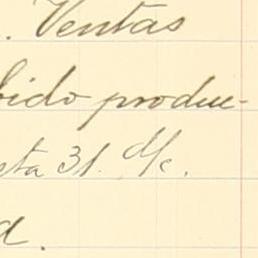 . Ventas
bido produc-
sta 31. d/c.
a.